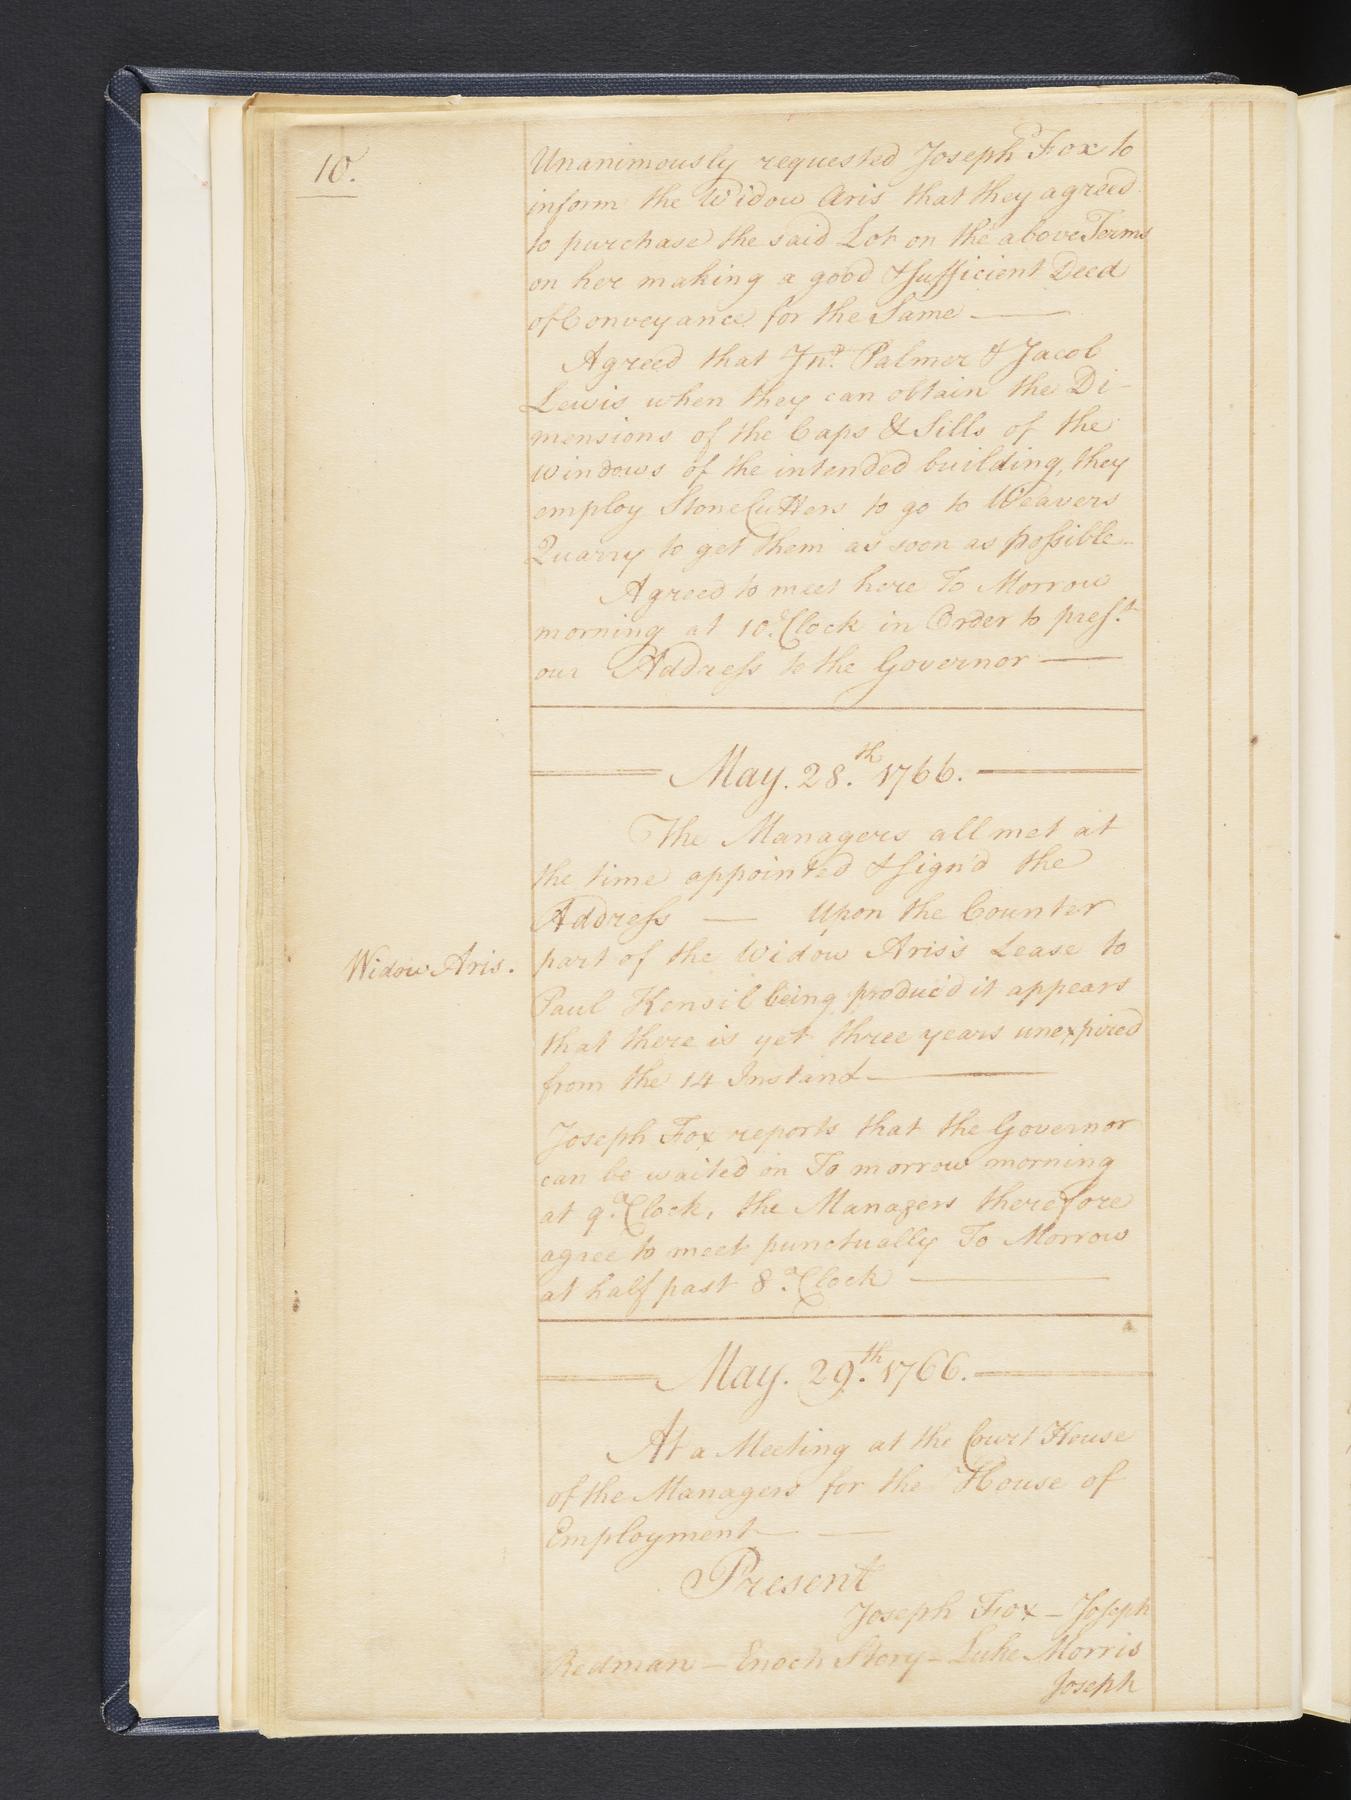 10.
Unanimously requested Joseph Fox to
inform the Widow Aris that they agreed
to purchase the said Lot on the above Terms
on her making a good & sufficient Deed
of Conveyance for the Same —
Agreed that Jno. Palmer & Jacob
Lewis when they can obtain the Di-
mensions of the Caps & Sills of the
Windows of the intended building, they
employ Stone Cutters to go to Weavers
Quarry to get them as soon as possible
Agreed to meet here To Morrow
morning at 10 oClock in Order to prest.
our Address to the Governor —
May. 28.th 1766.
The Managers all met at
the time appointed & sign'd the
Address — Upon the Counter
Widow Aris.
part of the Widow Aris's Lease to
Paul Kensil being produc'd it appears
that there is yet three years unexpired
from the 14 Instant —
Joseph Fox reports that the Governor
can be waited on To morrow morning
at 9 oClock, the Managers therefore
agree to meet punctually To Morrow
at half past 8 oClock —
May. 29.th 1766.
At a Meeting at the Court House
of the Managers for the House of
Employment — —
Present
Joseph Fox – Joseph
Redman – Enoch Story – Luke Morris
Joseph